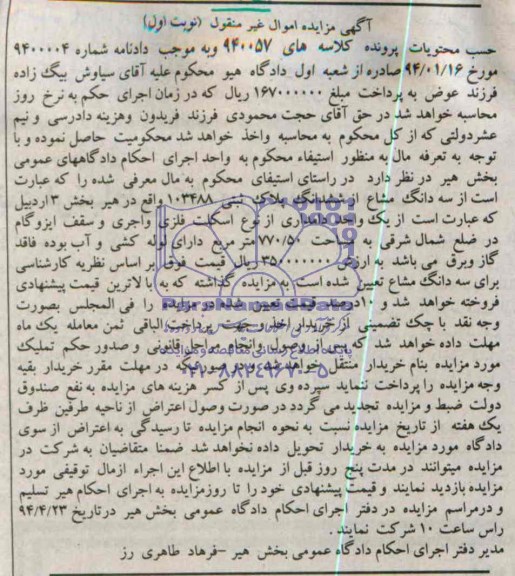 آگهی مزایده اموال غیر منقول (نوبت اول)
حسب محتویات پرونده کلاسه های ۹۴۰۰۵۷ وبه موجب دادنامه شماره ۹۴۰۰۰۰۴
مورخ ۹۴/۰۱/۱۶ صادره از شعبه اول دادگاه هیر محکوم علیه آقای سیاوش بیگ زاده
فرزند عوض به پرداخت مبلغ ۱۶۷۰۰۰۰۰۰ ریال که در زمان اجرای حکم به نرخ روز
محاسبه خواهد شد در حق آقای حجت محمودی فرزند فریدون وهزینه دادرسی و نیم
عشردولتی که از کل محکوم به محاسبه واخذ خواهد شد محکومیت حاصل نموده و با
توجه به تعرفه مال به منظور استیفاء محکوم به واحد اجرای احکام دادگاههای عمومی
بخش هیر در نظر دارد در راستای استیفای محکوم به مال معرفی شده را که عبارت
است از سه دانگ مشاع از ششدانگ پلاک ثبتی ۱۰۳۴۸۸ واقع در هیر بخش ۳ اردبیل
که عبارت است از یک واحد دامداری از نوع اسکلت فلزی واجری و سقف ایزوگام
در ضلع شمال شرقی به مساحت ۷۷۰/۵۰ متر مربع دارای لوله کشی و آب بوده فاقد
گاز وبرق می باشد به ارزش ۳۵۰۰۰۰۰۰۰ ریال قیمت فوق بر اساس نظریه کارشناسی
برای سه دانگ مشاع تعیین شده است به مزایده گذاشته که به با لاترین قیمت پیشنهادی
فروخته خواهد شد و ۱۰درصد قیمت تعیین شده در مزایده را فی المجلس بصورت
وجه نقد یا چک تضمینی از خریدار اخذ و جهت پرداخت الباقی ثمن معامله یک ماه
مهلت داده خواهد شد که پس از وصول وانجام مراحل قانونی و صدور حکم تملیک
مورد مزایده بنام خریدار منتقل خواهد شد و در صورتیکه در مهلت مقرر خریدار بقیه
وجه مزایده را پرداخت ننماید سپرده وی پس از کسر هزینه های مزایده به نفع صندوق
دولت ضبط و مزایده تجدید می گردد در صورت وصول اعتراض از ناحیه طرفین ظرف
یک هفته از تاریخ مزایده نسبت به نحوه انجام مزایده تا رسیدگی به اعتراض از سوی
دادگاه مورد مزایده به خریدار تحویل داده نخواهد شد ضمنا متقاضیان به شرکت در
مزایده میتوانند در مدت پنج روز قبل از مزایده با اطلاع این اجراء ازمال توقیفی مورد
مزایده بازدید نمایند و قیمت پیشنهادی خود را تا روزمزایده به اجرای احکام هیر تسلیم
و درمراسم مزایده در دفتر اجرای احکام دادگاه عمومی بخش هیر درتاریخ ۹۴/۴/۲۳
راس ساعت ۱۰ شرکت نمایند .
مدیر دفتر اجرای احکام دادگاه عمومی بخش هیر -فرهاد طاهری رز